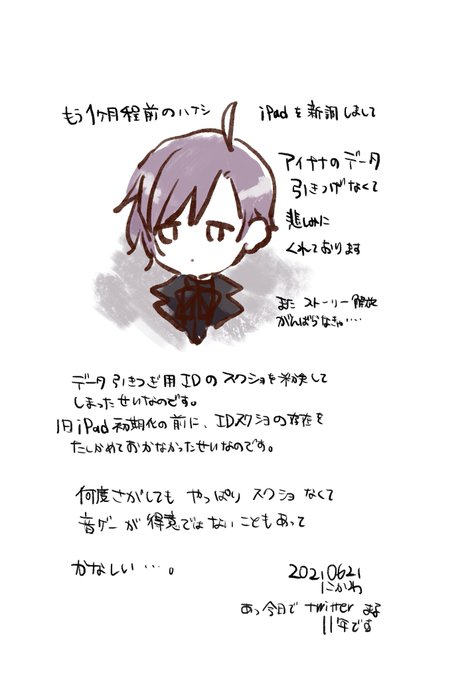 もう1ヶ月程前のハナシ
iPadを新調しまして
アイナナのデータ
引きつげなくて
悲しみに
くれております
また ストーリー解放
がんばらなきゃ…
データ引きつぎ用IDのスクショを消して
しまったせいなのです。
旧iPad初期化の前に、IDスクショの存在を
たしかめておかなかったせいなのです。
何度さがしても やっぱり スクショ なくて
音ゲーが得意でないこともあって
かなしい…。
20210621
にかわ
あっ今日で twitter まる
11年です